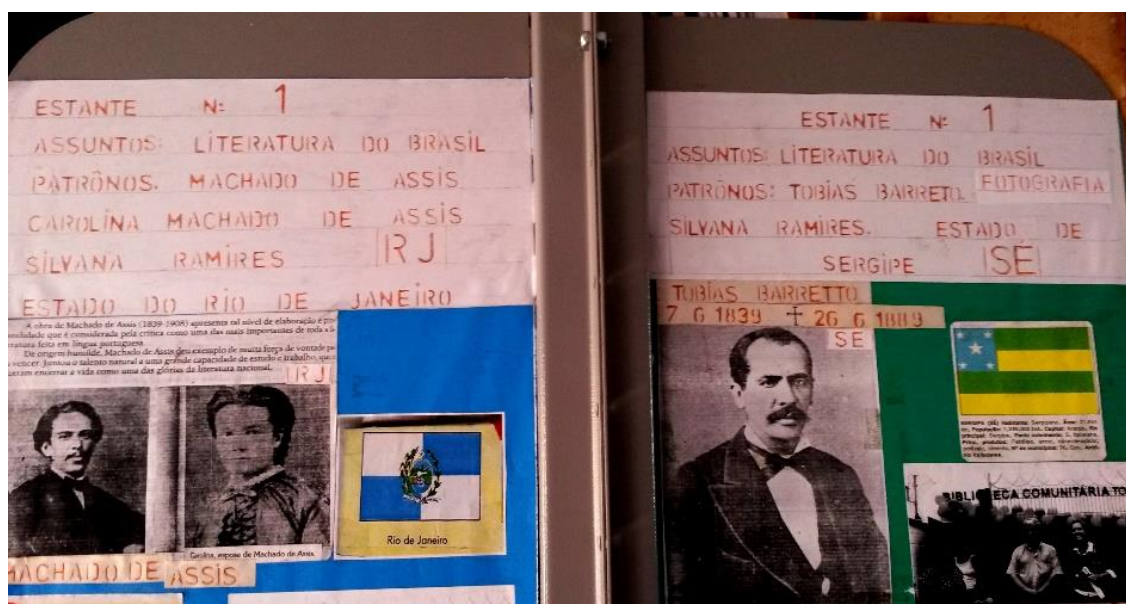 ESTANTE Nº 1
ASSUNTOS: LITERATURA DO BRASIL
PATRÔNOS. MACHADO DE ASSIS
CAROLINA MACHADO DE ASSIS
SILVANA RAMIRES RJ
ESTADO DO RIO DE JANEIRO
A obra de Machado de Assis (1839-1908) apresenta tal nível de elaboração e
que é considerada pela crítica como uma das mais importantes de toda a
feita em língua portuguesa.
De origem humilde, Machado de Assis deu exemplo de muita força de vontade
vencer. Juntou o talento natural a uma grande capacidade de estudo e trabalho, que
encerrar a vida como uma das glórias da literatura nacional.
RJ
Carolina, esposa de Machado de Assis.
Rio de Janeiro
MACHADO DE ASSIS
ESTANTE Nº 1
ASSUNTOS: LITERATURA DO BRASIL
PATRÔNOS: TOBIAS BARRETO. FOTOGRAFIA
SILVANA RAMIRES. ESTADO DE
SERGIPE SE
TOBIAS BARRETTO
7 6 1839 † 26 6 1889
SE
BIBLIOTECA COMUNITÁRIA TO